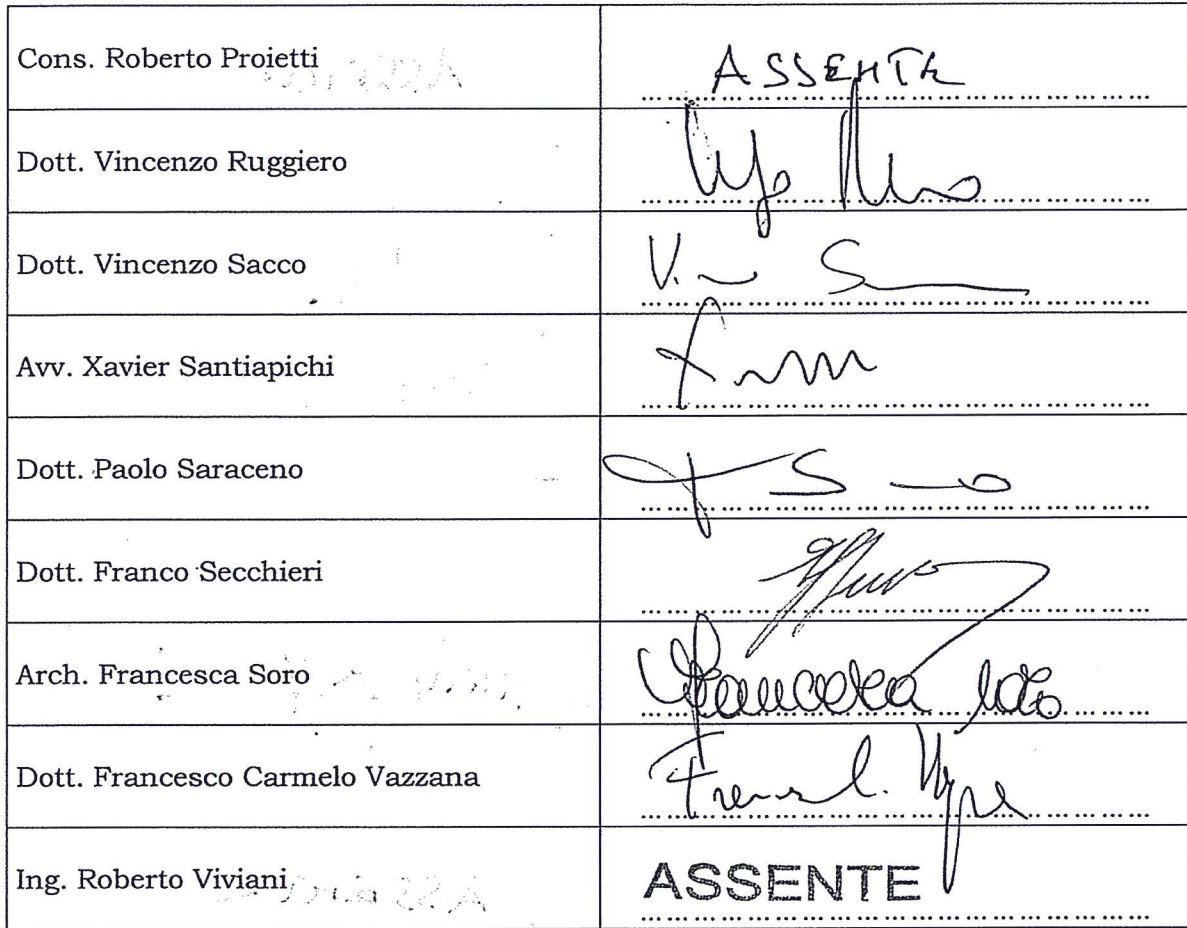 Cons. Roberto Proietti
ASSENTE
Dott. Vincenzo Ruggiero
Dott. Vincenzo Sacco
V. S
Avv. Xavier Santiapichi
Dott. Paolo Saraceno
Dott. Franco Secchieri
Arch. Francesca Soro
Francesca Soro
Dott. Francesco Carmelo Vazzana
Ing. Roberto Viviani
ASSENTE